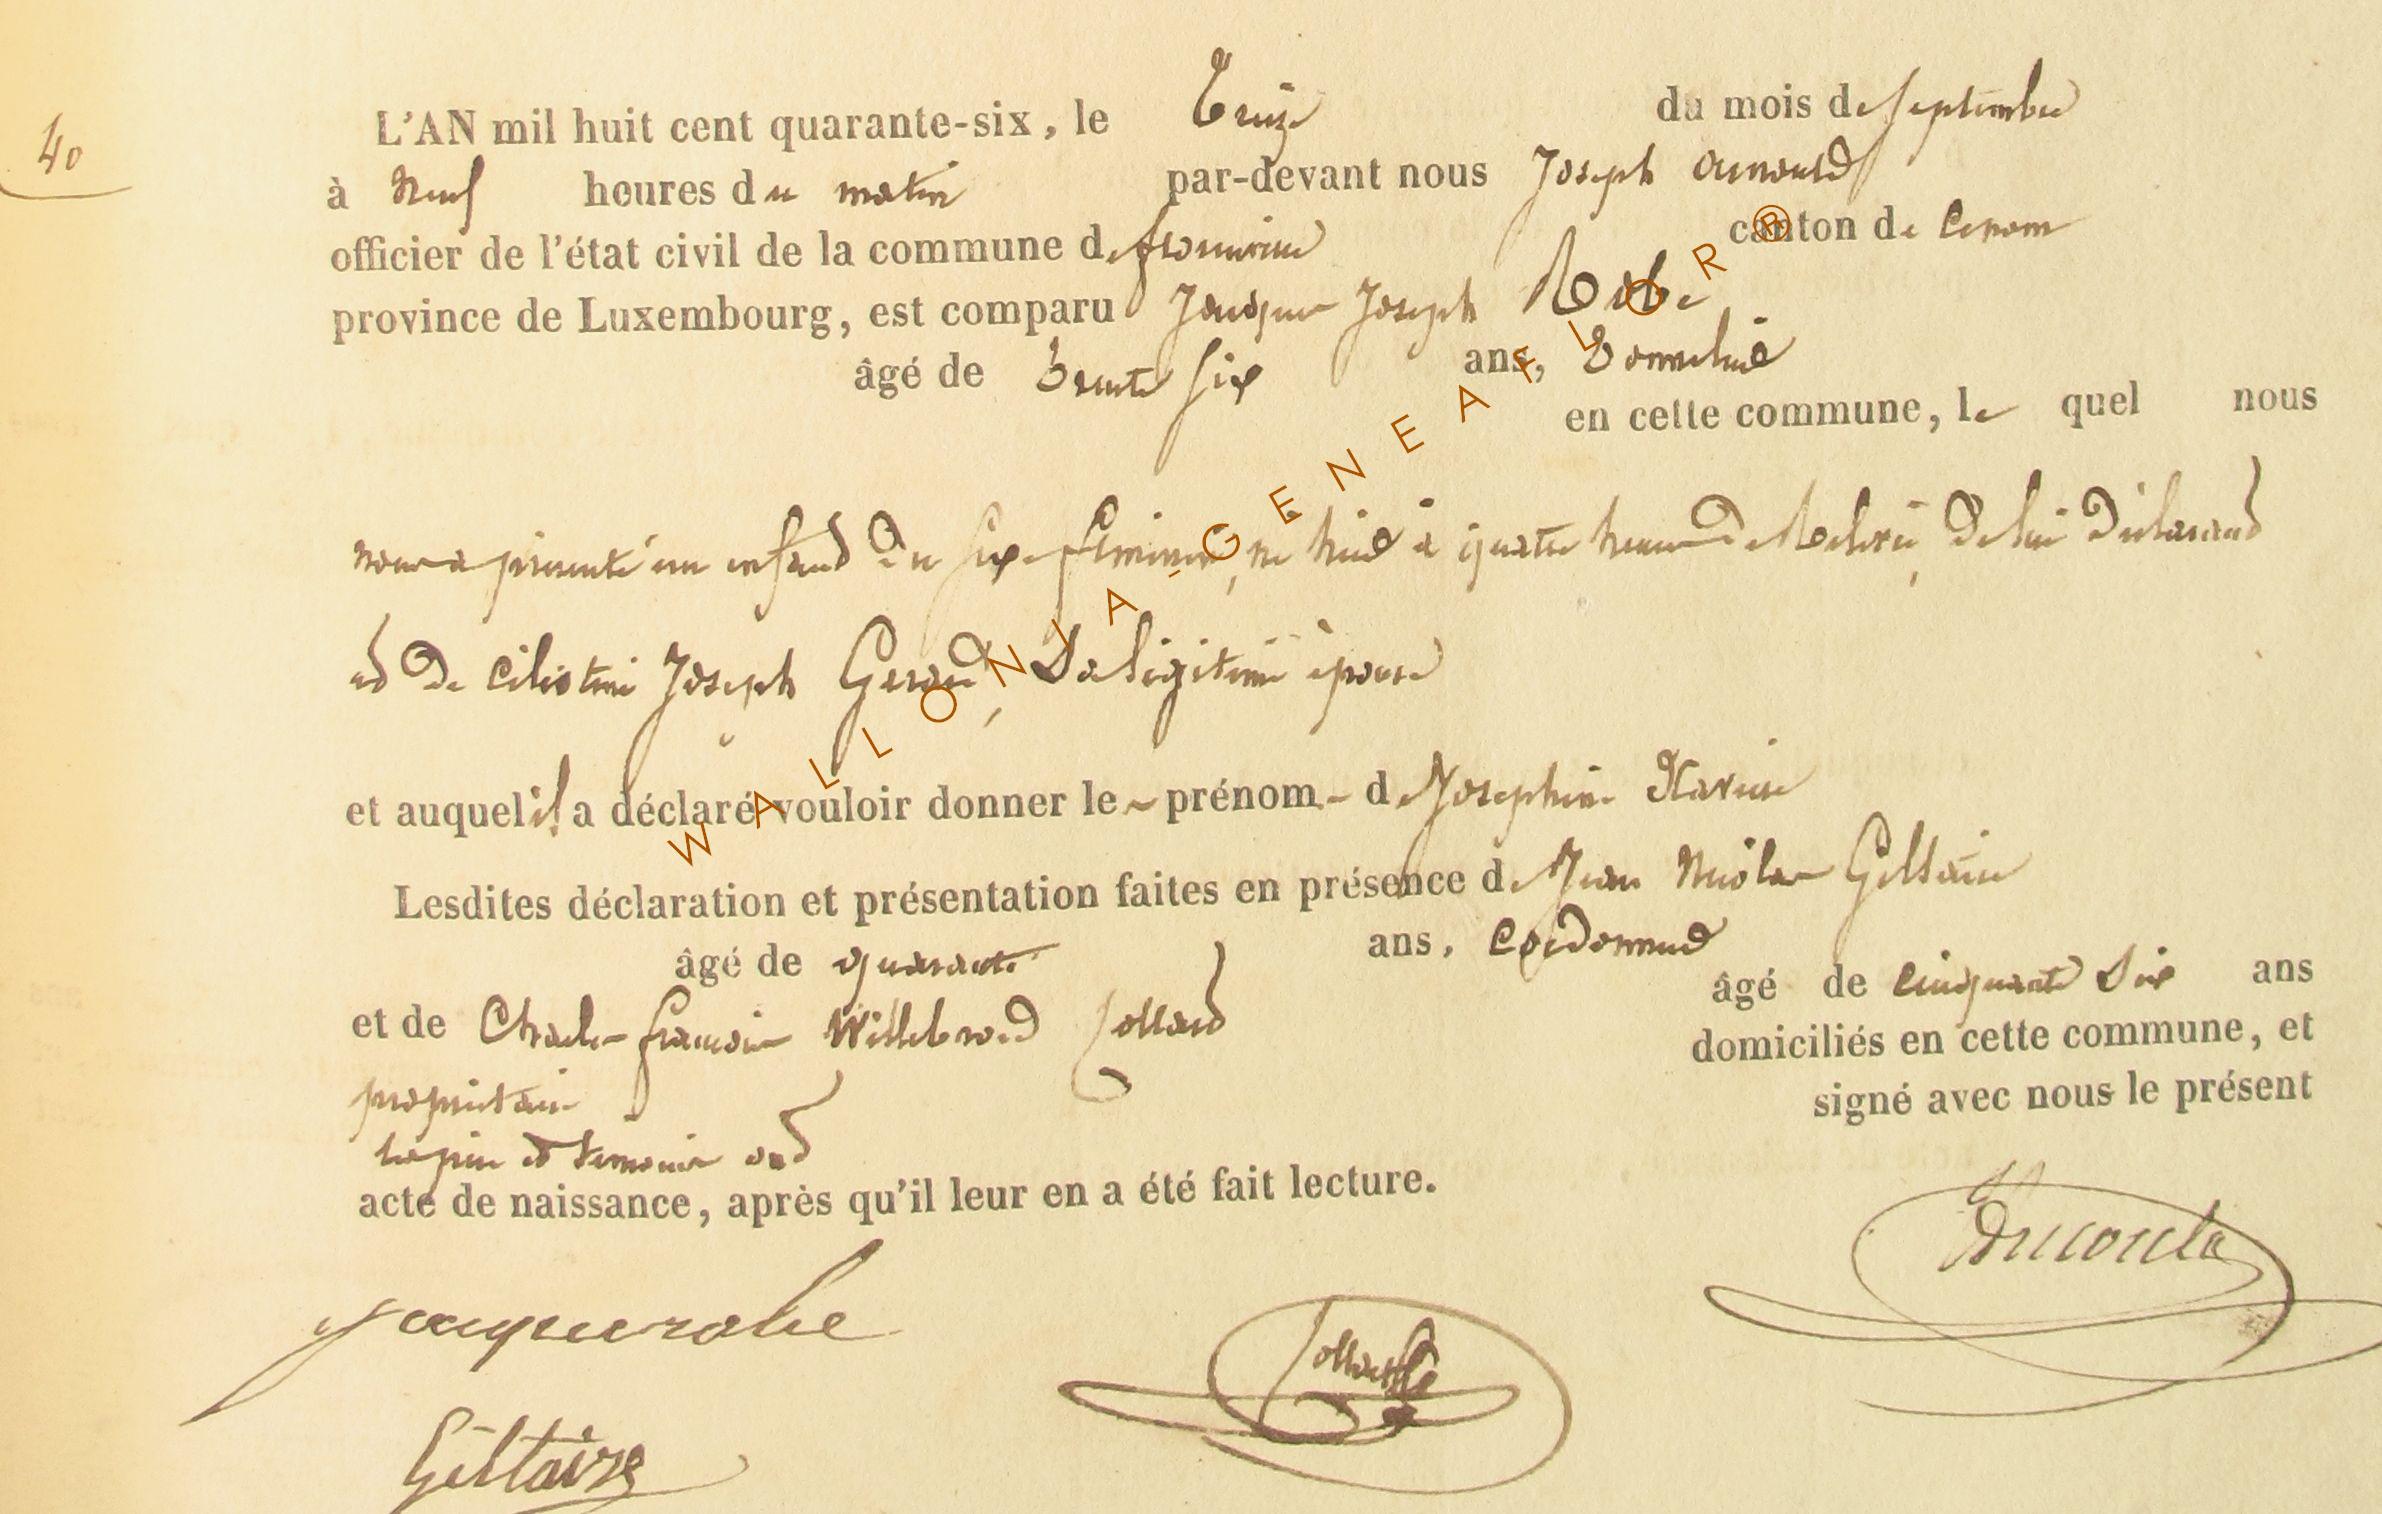 40
L'AN mil huit cent quarante-six, le Treize du mois de septembre
à Neuf heures du matin par-devant nous Joseph Arnould
officier de l'état civil de la commune de florenville canton de
province de Luxembourg, est comparu Jacques Joseph Robe
âgé de trente six ans, Tonnelier
en cette commune, le quel nous
nous a présenté un enfant du sexe féminin, né hier à quatre heures de Relevée, de lui déclarant
et de Célestine Joseph Gerard, Sa légitime épouse
et auquel il a déclaré vouloir donner le prénom de Josephine Xavier
Lesdites déclaration et présentation faites en présence de Jean Nicolas Giltaire
âgé de quarante ans, Cordonnier
et de Charles françois Willebrord Jollard âgé de cinquante Six ans
propriétaire domiciliés en cette commune, et
le père et témoins ont signé avec nous le présent
acte de naissance, après qu'il leur en a été fait lecture.
jacque robe
Giltaire
WALLONIA-GENEAFLOR®